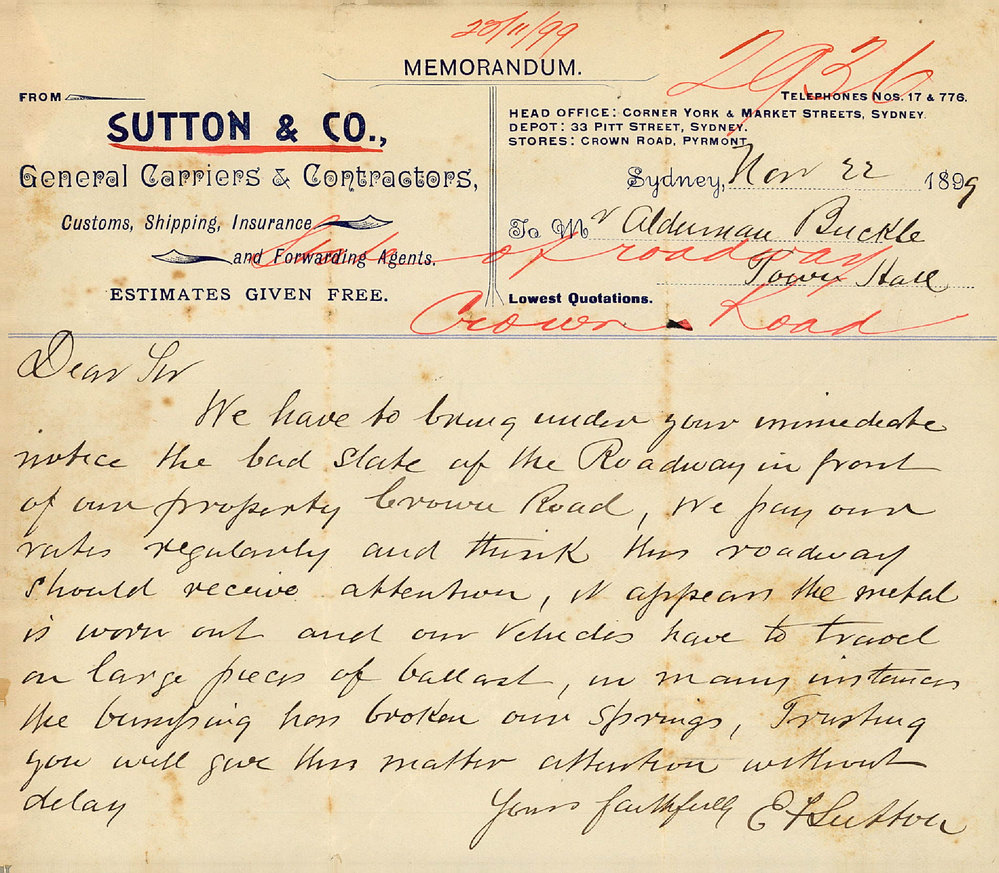 23/11/99
2936
MEMORANDUM.
FROM
SUTTON & CO.,
General Carriers & Contractors,
Customs, Shipping, Insurance
and Forwarding Agents.
ESTIMATES GIVEN FREE.
TELEPHONES NOS. 17 & 776.
HEAD OFFICE: CORNER YORK & MARKET STREETS, SYDNEY.
DEPOT: 33 PITT STREET, SYDNEY.
STORES: CROWN ROAD, PYRMONT.
Sydney, Nov 22 1899
To Mr Alderman Buckle
Town Hall
Lowest Quotations.
State of roadway
Crown Road
Dear Sir
We have to bring under your immediate
notice the bad state of the Roadway in front
of our property Crown Road, We pay our
rates regularly and think this roadway
should receive attention, it appears the metal
is worn out and our Vehicles have to travel
on large pieces of ballast, in many instances
the bumping has broken our springs, Trusting
you will give this matter attention without
delay
Yours faithfully E Sutton